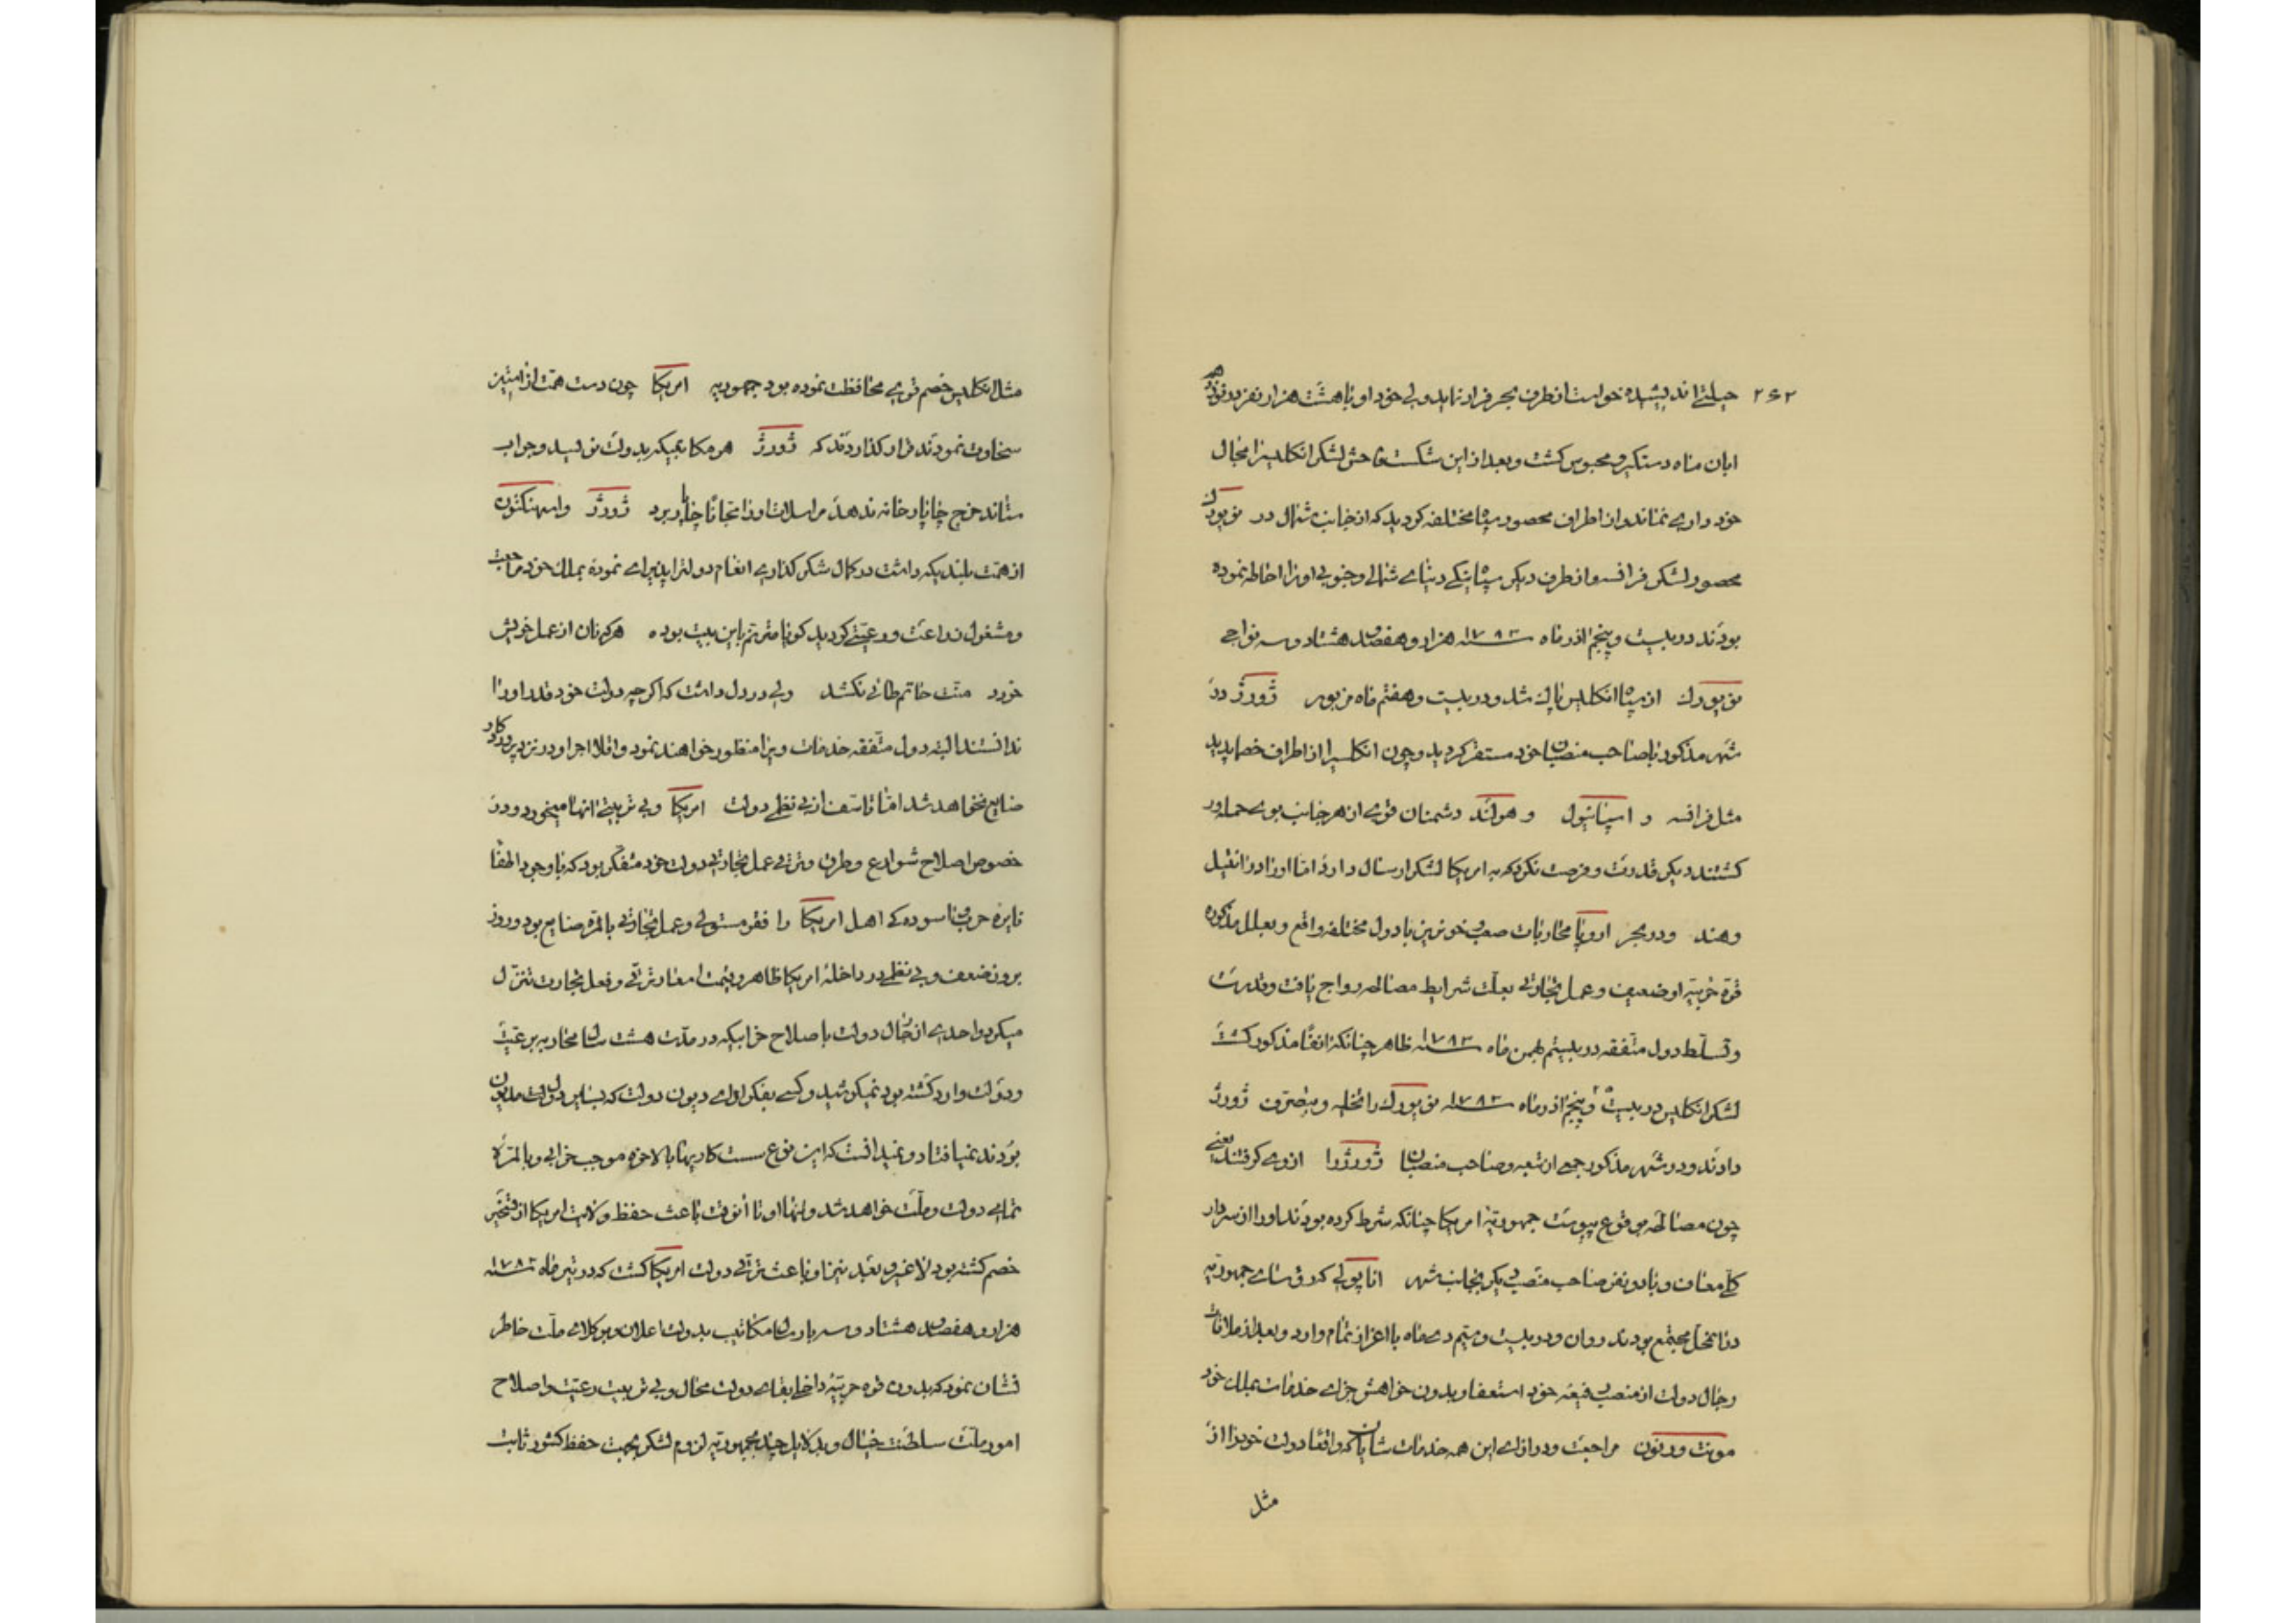 ۲۶۲
حیلتی اندیشیده خواست از طرف بحر فرار نماید ولی خود او با هشت هزار نفر در نوزدهم
ابان ماه دستکیر و محبوس کشت و بعد از این شکست فاحش لشکر انکلیس را مجال
خود داری نماند و از اطراف محصور سپاه مختلفه کردید که از جانب شمال در نویورک
محصور لشکر فرانسه و از طرف دیکر سپاه ینکی دنیای شمالی و جنوبی او را احاطه نموده
بودند در بیست و پنجم اذر ماه سنه ۱۷۸۳ هزار و هفصد هشتاد و سه نواحی
نویورک از سپاه انکلیس پاک شد و در بیست و هفتم ماه مزبور ژورژ در
شهر مذکور با صاحب منصبان خود مستقر کردید و چون انکلیس را از اطراف خصما پدید
مثل فرانسه و اسپانیول و هولند دشمنان قوی از هر جانب بوی حمله‌ور
کشتند دیکر قدرت و فرصت نکرد که به امریکا لشکر ارسال دارد اما او را در انتیل
و هند و در بحر اروپا محاربات صعب خونریز با دول مختلفه واقع و بعلل مذکوره
قوۀ حربیه او ضعیف و عمل تجارتی بعلت شرایط مصالحه رواج یافت و قدرت
و تسلط دول متفقه در بیستم بهمن ماه سنه ۱۷۸۳ ظاهر چنانکه انفا مذکور کشت
لشکر انکلیس در بیست و پنجم اذر ماه سنه ۱۷۸۳ نویورک را تخلیه و بتصرف ژورژ
دادند و در شهر مذکور جمعی از تبعه و صاحب منصبان ژورژ را از وی کرفتند یعنی
چون مصالحه بوقوع پیوست جمهوریۀ امریکا چنانکه شرط کرده بودند او را از سردار
کلی معاف و با دو نفر صاحب منصب دیکر بجانب شهر اناپولی که رؤسای جمهوریه
در انمحل مجتمع بودند روان و در بیست و سیم دی ماه با اعزاز تمام وارد و بعد از ملاقات
رجال دولت از منصب رفیعه خود استعفا و بدون خواهش جزای خدمات بملک خود
مونت ورنون مراجعت و در ازای این همه خدمات شایان که واقعا دولت خود را از
مثل
مثل انکلیس خصم قوی محافظت نموده بود جمهوریه امریکا چون دست همت از استین
سخاوت نمودند قرار کذاردند که ژورژ هر مکاتیبیکه بدولت نویسد و جواب
ستاند خرج چاپارخانه ندهد مراسلات او را مجانا چاپار برد ژورژ واسهنکتون
از همت بلندیکه داشت در کمال شکر کذاری انعام دولت را پذیرای نموده بملک خود مراجعت
و مشغول زراعت و رعیتی کردید کویا مترنم باین بیت بوده هرکه نان از عمل خویش
خورد منت حاتم طائی نکشد ولی در دل داشت که اکر چه دولت خود قدر او را
ندانستند البته دول متفقه خدمات ویرا منظور خواهند نمود و اقلا اجر او در نزد پروردکار
ضایع نخواهد شد اما تاسف از بی نظمی دولت امریکا و بی تربیتی انها میخورد و در
خصوص اصلاح شوارع و طرق و ترقی عمل تجارتی دولت خود متفکر بود که با وجود اطفا
نایرۀ حرب و اسوده‌کی اهل امریکا را فقر مستولی و عمل تجارتی بالمره ضایع بود و روز
بروز ضعف و بی نظمی در داخلۀ امریکا ظاهر و قیمت امتعه در ترقی و فعل تجارت تنزل
میکرد و احدی از رجال دولت باصلاح خرابیکه در مدت هشت سال محاربه بر رعیت
و دولت وارد کشته بود نمیکوشید و کسی بفکر ادای دیون دولت که بسایر دول مدیون
بودند نمیافتاد و نمیدانست که این نوع سست کاریها بالاخره موجب خرابی و بالمره
تمامی دولت و ملت خواهد شد و تنها او تا انوقت باعث حفظ ولایت امریکا از تسخیر
خصم کشته بود لا غیر و بعد نیز او باعث ترقی دولت امریکا کشت که در تیر ماه سنه ۱۷۸۳
هزار و هفصد هشتاد و سه بارسال مکاتیب بدولت اعلان و بوکلای ملت خاطر
نشان نمود که بدون قوه حربیۀ داخلی بقای دولت محال و بی تربیت رعیت و اصلاح
امور ملت سلطنت خیال و بدلایل چند بجمهوریه لزوم لشکر بجهت حفظ کشور ثابت